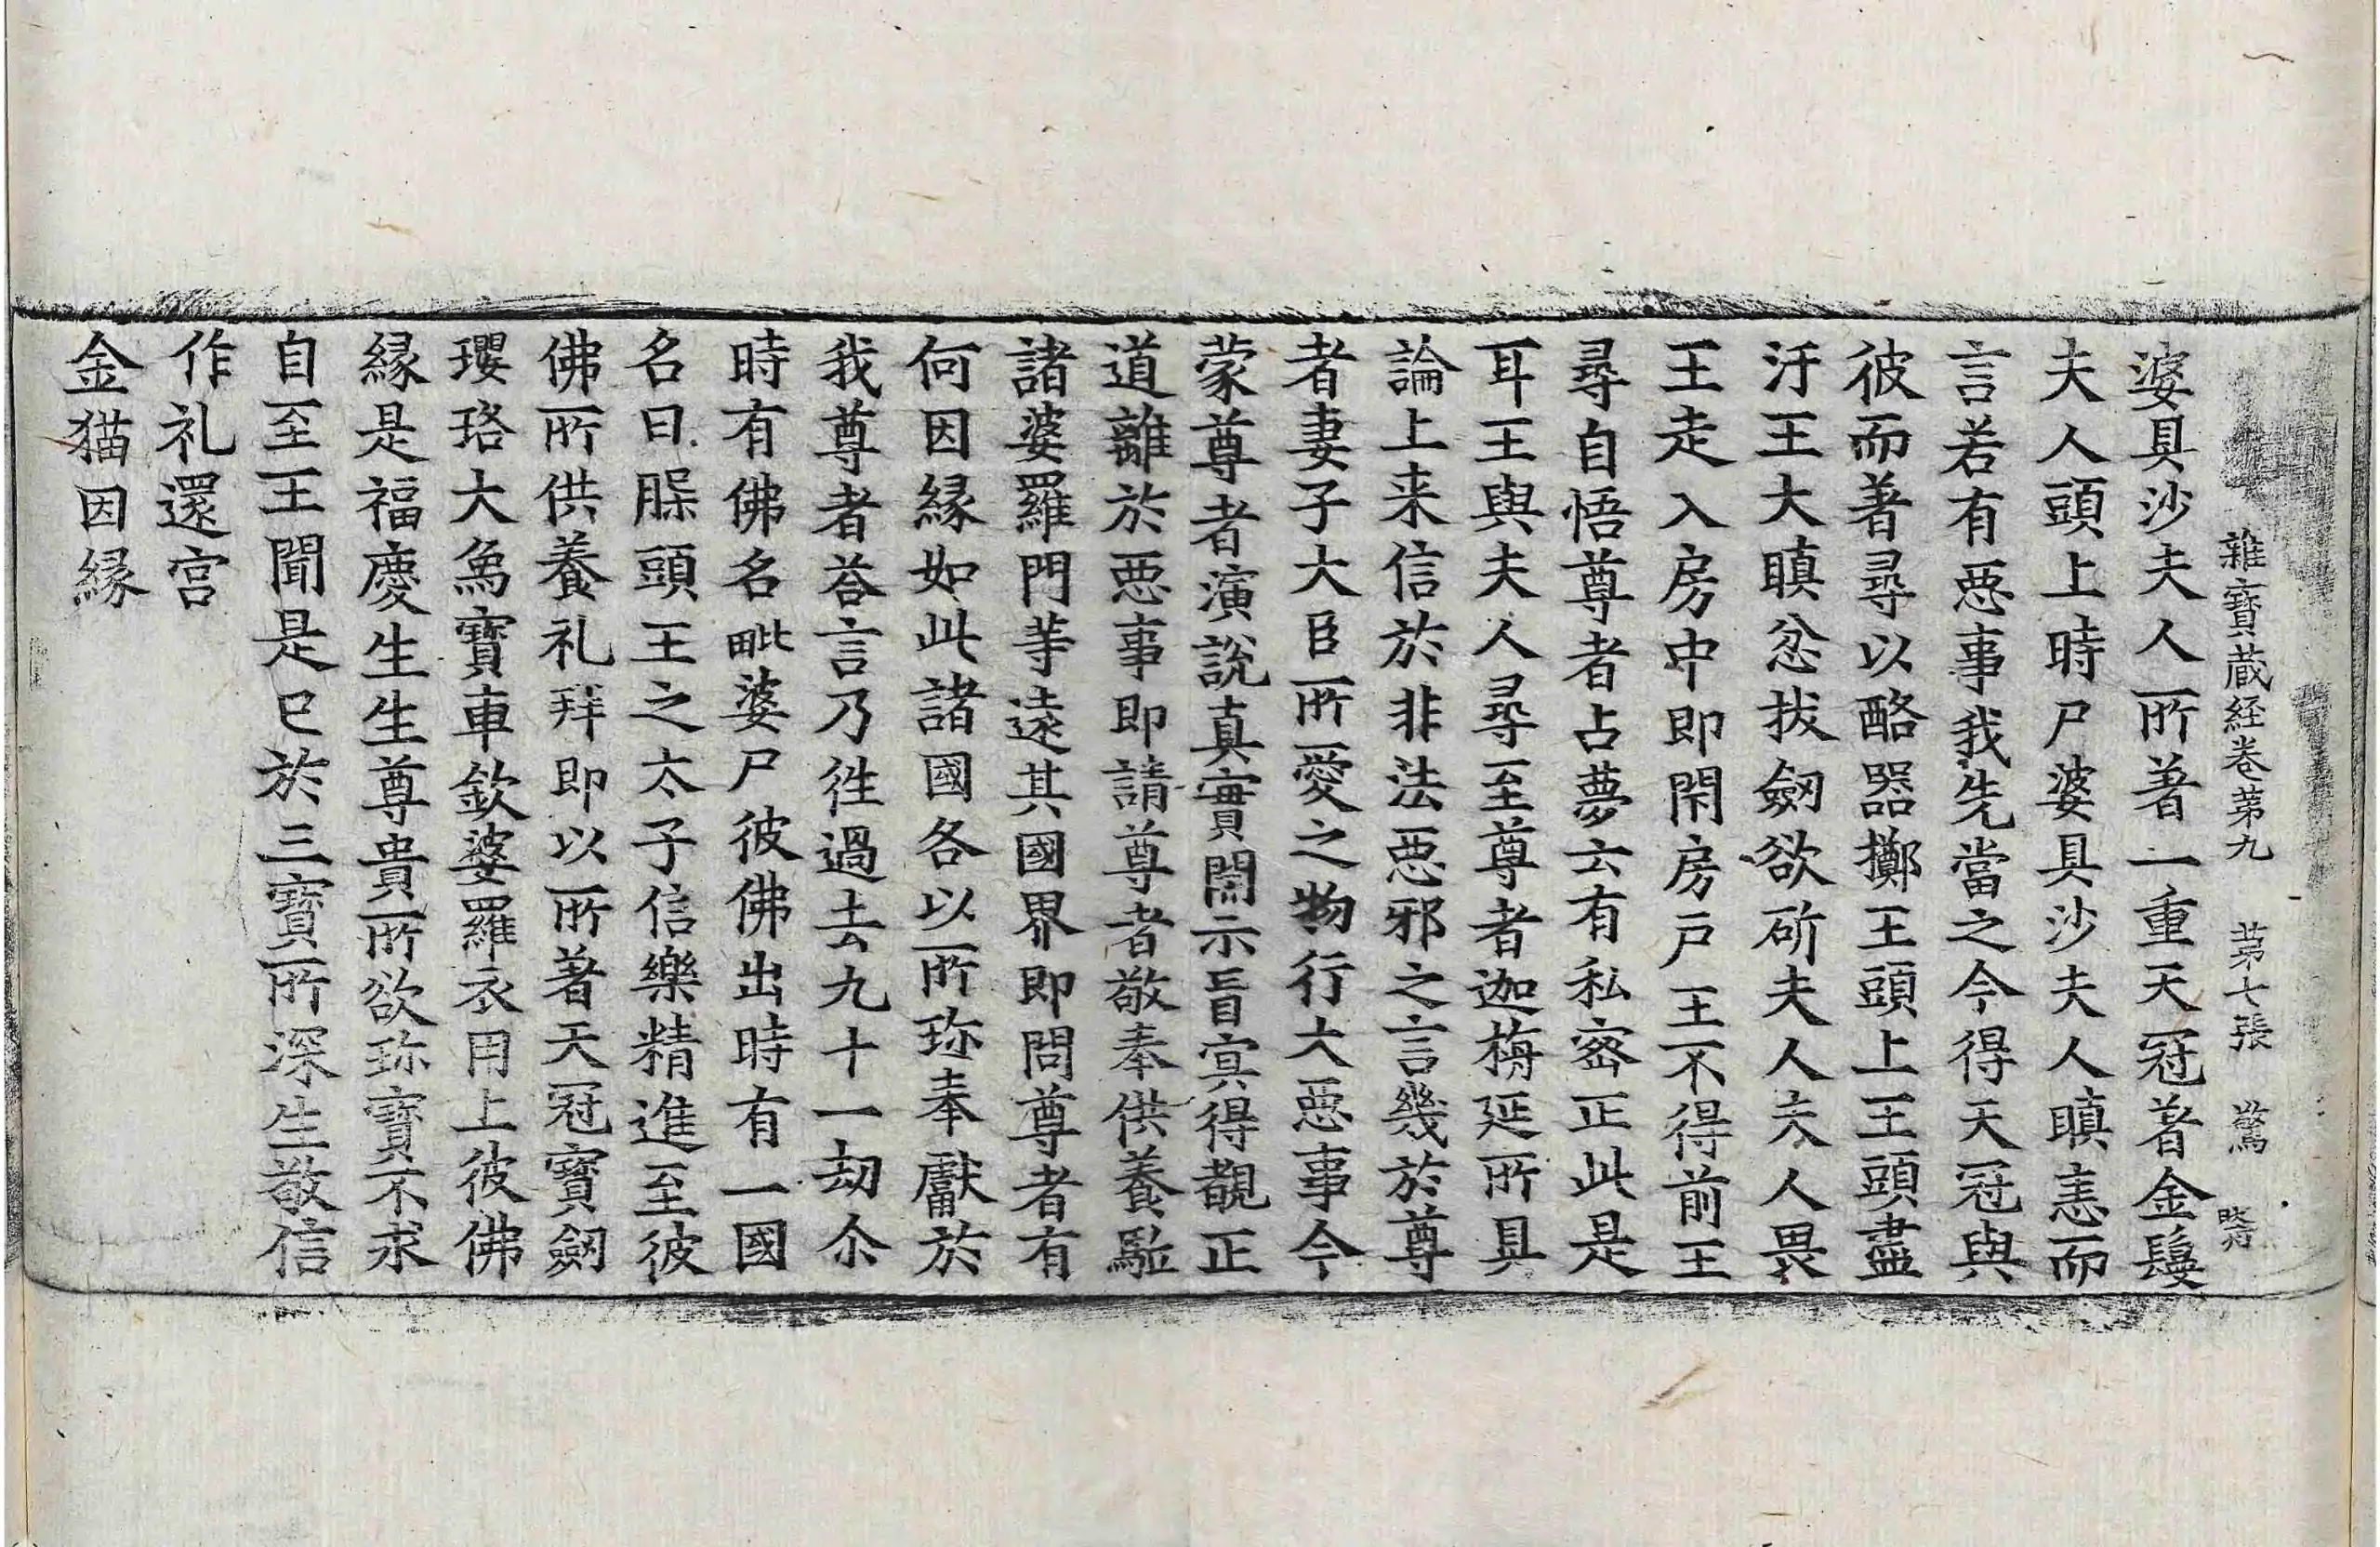 雜寶蔵経卷苐九 苐七張 驚
婆具沙夫人所著一重天冠著金鬘
夫人頭上時尸婆具沙夫人瞋恚而
言若有惡事我先當之今得天冠與
彼而著尋以酪器擲王頭上王頭盡
汙王大瞋忿拔劒欲斫夫人夫人畏
王走入房中即閇房戸王不得前王
尋自悟尊者占夢云有私密正此是
耳王與夫人尋至尊者迦栴延所具
論上来信於非法惡邪之言幾於尊
者妻子大臣所愛之物行大惡事今
蒙尊者演說真實開示盲冥得覩正
道離於惡事即請尊者敬奉供養駈
諸婆羅門等遠其國界即問尊者有
何因緣如此諸國各以所珎奉獻於
我尊者荅言乃徃過去九十一劫尒
時有佛名毗婆尸彼佛出時有一國
名曰䐧頭王之太子信樂精進至彼
佛所供養礼拜即以所著天冠寶劒
瓔珞大烏寶車欽婆羅衣用上彼佛
緣是福慶生生尊貴所欲珎寶不求
自至王聞是已於三寶所深生敬信
作礼還宮
金猫因緣